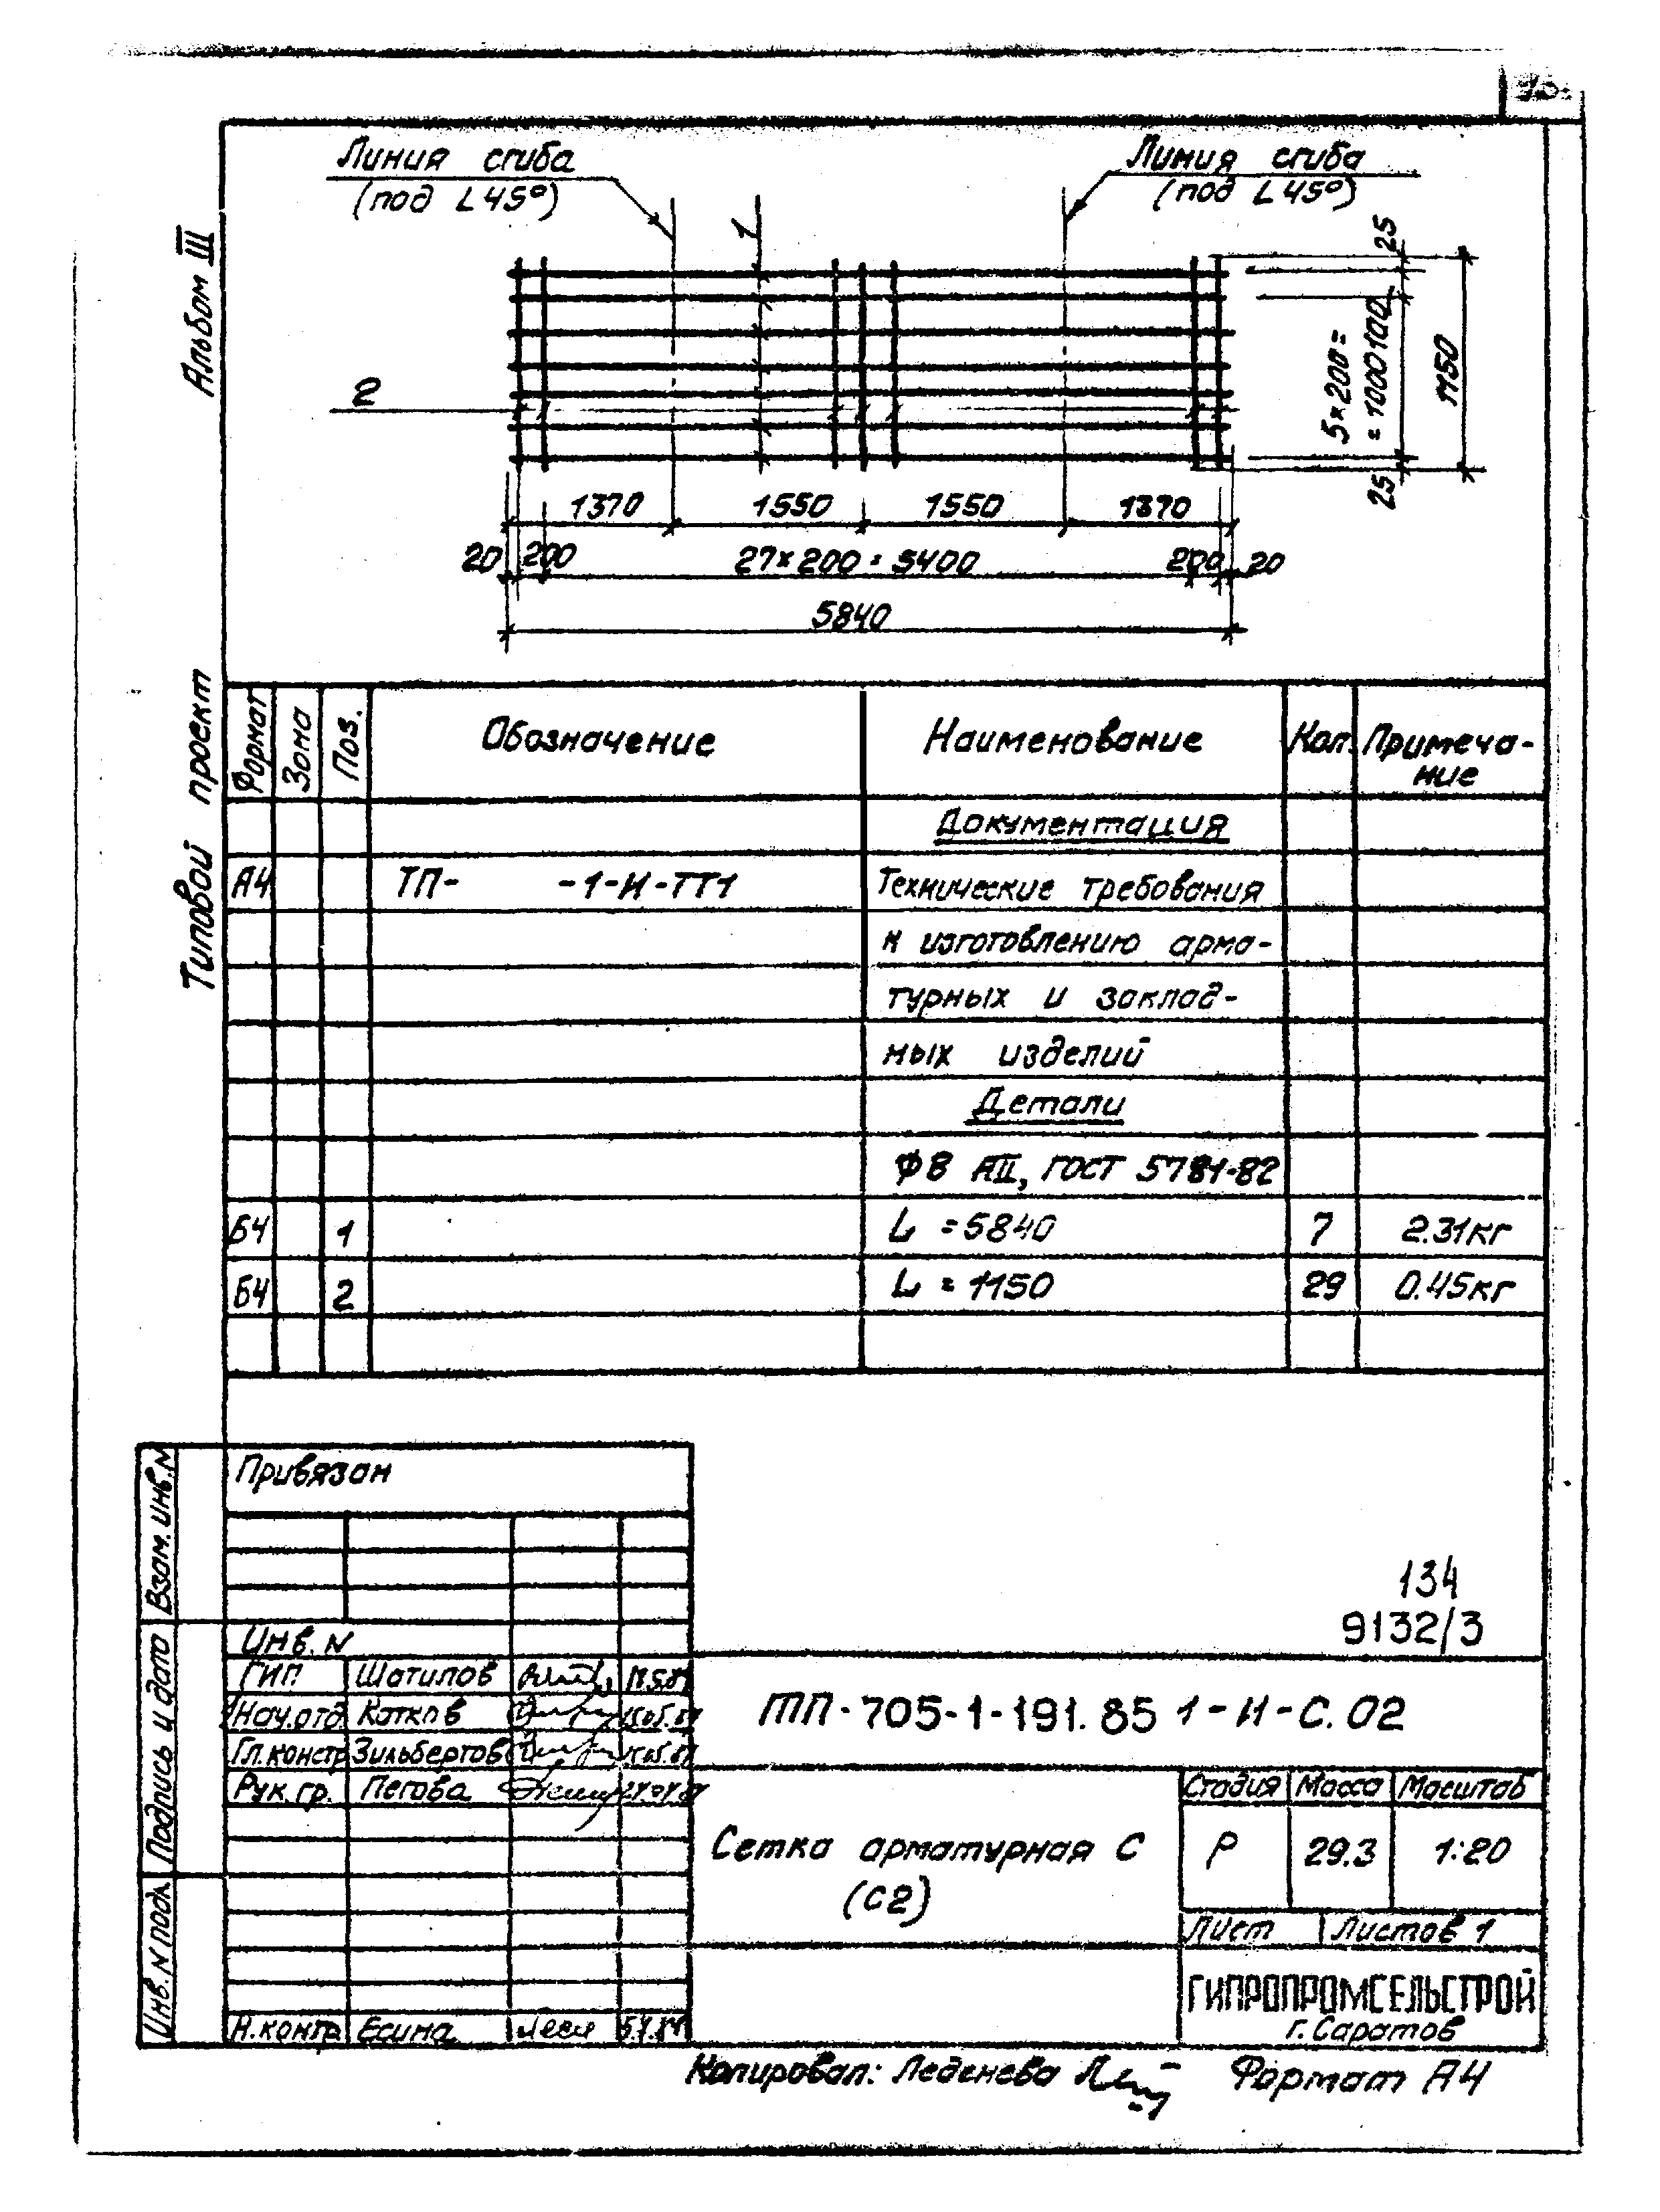 Линия сгиба
(под L 45°)
Линия сгиба
(под L 45°)
1
2
25
5×200=
=1000
100
25
1150
1370
1550
1550
1370
20
200
27×200=5400
200
20
5840
Альбом III
Типовой проект
Формат
Зона
Поз.
Обозначение
Наименование
Кол.
Примеча-
ние
Документация
А4 ТП- -1-И-ТТ1 Технические требования
к изготовлению арма-
турных и заклад-
ных изделий
Детали
Ф8 АIII, ГОСТ 5781-82
Б4 1 L =5840 7 2.31кг
Б4 2 L = 1150 29 0.45кг
Привязан
Инв. N
134
9132/3
Взам. инв. N
Подпись и дата
Инв. N подл.
ГИП Шатилов
Нач.отд. Катков
Гл.констр Зильбертов
Рук. гр. Пегова
Н.контр Есина
ТП-705-1-191.85 1-И-С.02
Сетка арматурная С
(С2)
Стадия Масса Масштаб
Р 29.3 1:20
Лист Листов 1
ГИПРОПРОМСЕЛЬСТРОЙ
г. Саратов
Копировал: Леденева
Формат А4